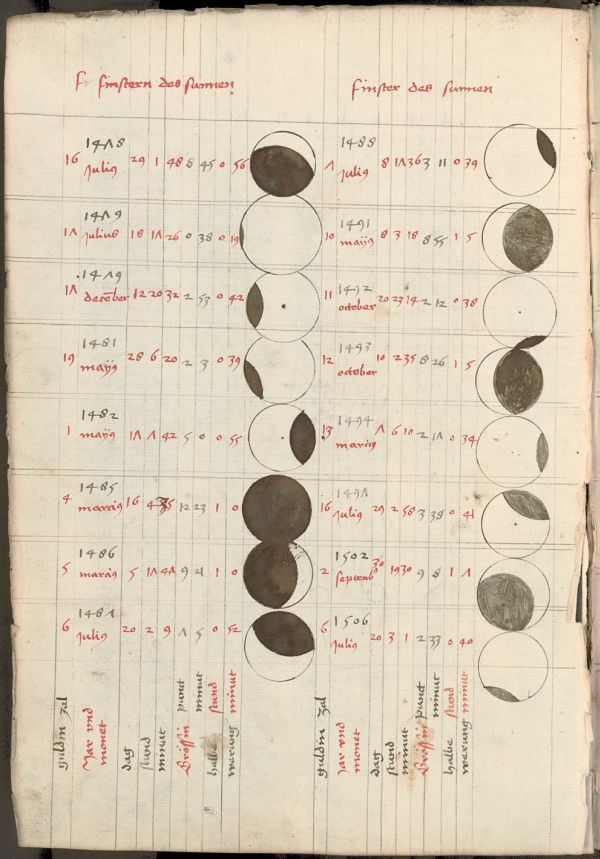 finstern des sunnen
finster des sunnen
1478
16 Julius 29 1 48 8 45 0 56
1479
17 Julius 18 17 26 0 38 0 19
1479
17 december 12 20 32 2 53 0 42
1481
19 maijus 28 6 20 2 3 0 39
1482
1 maijus 17 7 42 5 0 0 55
1485
4 marcius 16 12 23 1 0
1486
5 marcius 5 17 9 1 0
1487
6 Julius 20 2 9 7 5 0 52
guldin zal
Jar vnd monet
dag
stund
minut
Grössin punct
minut
halbe stund
werung minut
1488
7 Julius 8 17 36 3 11 0 39
1491
10 maijus 8 3 18 8 55 1 5
1492
11 october 20 23 14 2 12 0 38
1493
12 october 10 2 35 8 26 1 5
1494
13 marcius 7 6 10 2 17 0 34
1497
16 Julius 29 2 58 3 38 0 41
1502
2 septemb 30 19 30 9 8 1 7
1506
6 Julius 20 3 1 2 33 0 40
guldin zal
Jar vnd monet
dag
stund
minut
Grössin punct
minut
halbe stund
werung minut